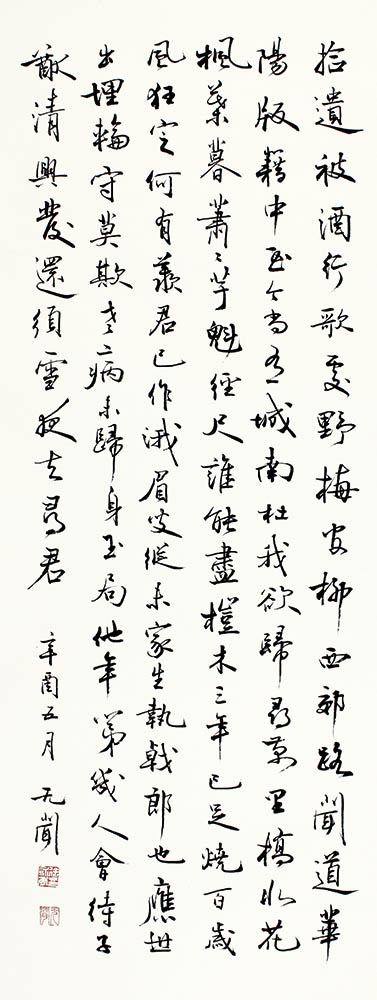 拾遺被酒行歌處野梅官柳西郊路聞道華
陽版籍中至今尚有城南杜我欲歸尋萬里橋水花
楓葉暮蕭々芋魁徑尺誰能盡榿木三年已足燒百歲
風狂定何有羨君已作涐眉叟縱未家生執戟郎也應世
出埋輪守莫欺老病未歸身玉局他年第幾人會待子
猷清興發還須雪夜去尋君
辛酉五月 无聞